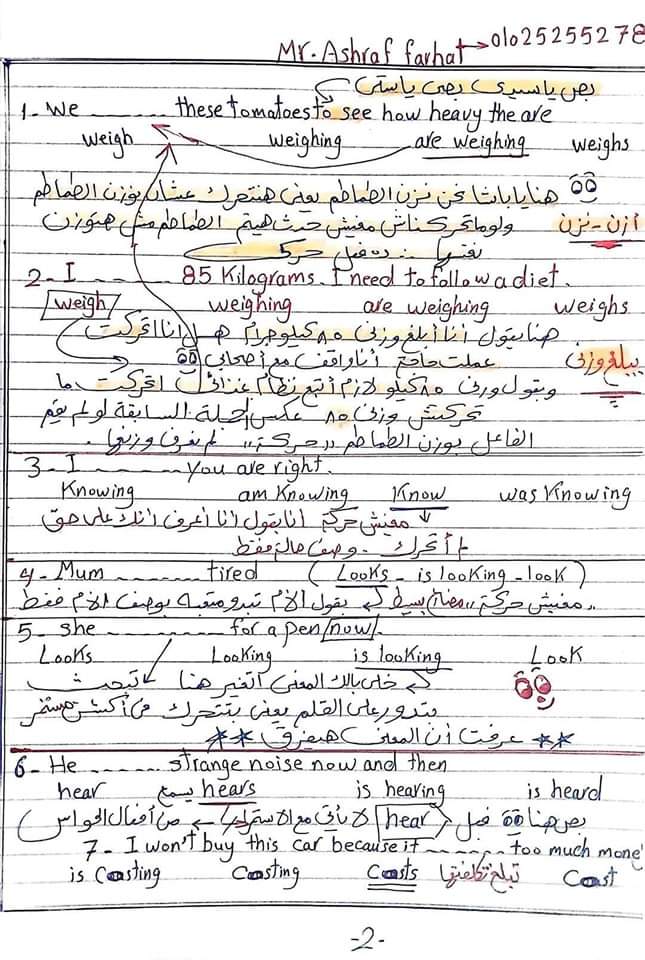 Mr. Ashraf farhat → 01025255278
بص ياسيدى بصى ياستى
1- We ........ these tomatoes to see how heavy the are
weigh weighing are weighing weighs
هنا يا باشا نحن نزن الطماطم يعنى هنتحرك عشان نوزن الطماطم
أزن - نزن ولو ماتحركناش مفيش حد هيتم الطماطم مش هتوزن
نفسها ده فعل حركة
2- I ........ 85 Kilograms. I need to follow a diet.
weigh weighing are weighing weighs
هنا بيقول أنا أبلغ وزنى ٨٥ كيلوجرام هل أنا اتحركت
يبلغ وزنى عملت حاجة أنا واقف مع أصحابى
وبقول وزنى ٨٥ كيلو لازم أتبع نظام غذائى اتحركت ما
تحركتش وزنى ٨٥ عكس الجملة السابقة لو لم يقم
الفاعل بوزن الطماطم "حركة" لم نعرف وزنها.
3- I ........ you are right.
Knowing am Knowing Know was Knowing
مفيش حركة أنا بقول أنا أعرف أنك على حق
لم أتحرك. وصف حالة فقط
4- Mum ........ tired (Looks - is looking - look)
"مفيش حركة" مضارع بسيط يقول الأم تبدو متعبة بوصف الأم فقط
5- she ........ for a pen now.
Looks Looking is looking Look
خلى بالك المعنى اتغير هنا تبحث
بتدور على القلم يعنى بتتحرك فى أكشن مستمر
** عرفت أن المعنى هيفرق **
6- He ........ strange noise now and then
hear يسمع hears is hearing is heard
بص هنا فعل hear لا يأتى مع الاستمرار من أفعال الحواس
7- I won't buy this car because it ........ too much mone
is Costing Costing Costs تبلغ تكلفتها Cost
-2-